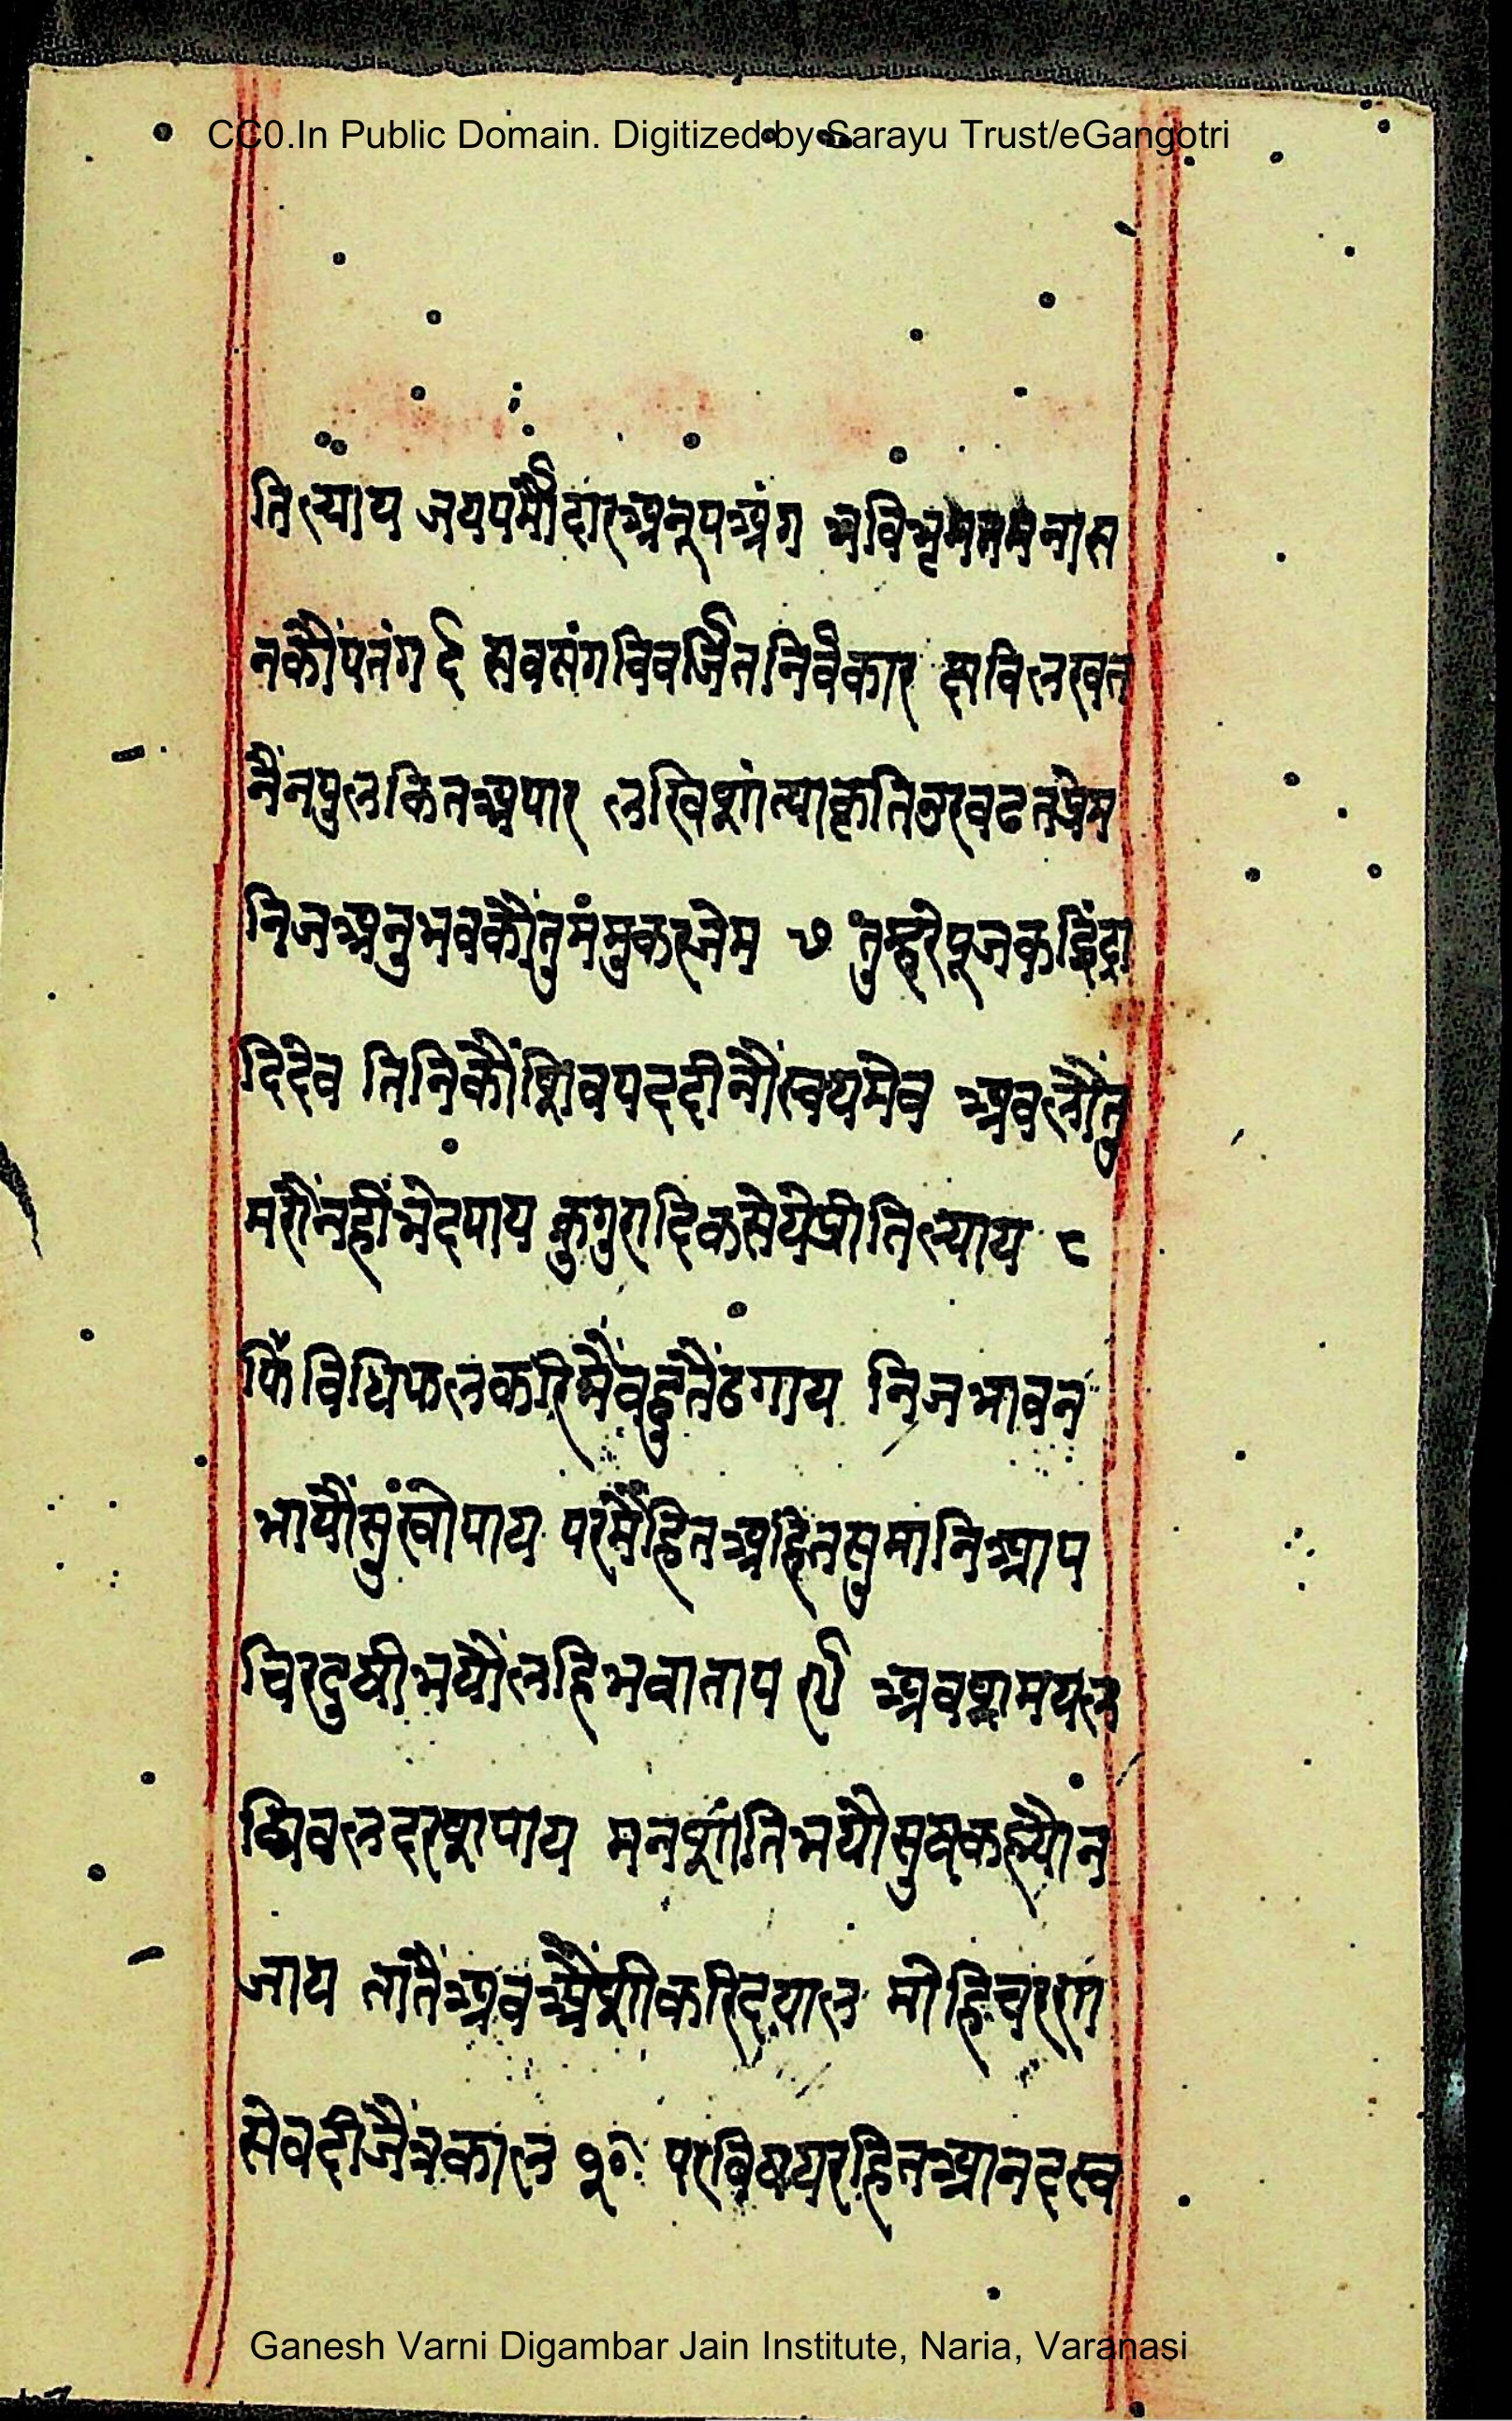 CC0.In Public Domain. Digitized by Sarayu Trust/eGangotri
तिल्याय जयपर्मौदारअनूपअंग भविभृमतममनास
नकौंपतंग ६ सवसंगविवर्जितनिर्वेकार छविलखत
नैंनपुलकितअपार लखिशांत्याकृतिउरवढतप्रेम
निजअनुभवकौंतुमंमुकरजेम ७ तुम्हरेपूजकइिंद्रा
दिदेव तिनिकौंशिवपददीनौंस्वयमेव अवलौंतु
मरौंनहींभेदपाय कुगुरादिकसेयेप्रीतिल्याय ८
फिॅविधिफलकरिमैंवहुतैंढगाय निजभावन
भायौंसुंखोपाय परमैंहितअहितसुमानिआप
चिरदुषीभयौंलहिभवाताप ९ अवशमयल
ब्धिवलदरशपाय मनशांतिभयौसुषकह्यौन
जाय तातैंअवअैंशीकरिदयाल मोहिचररण
सेवदीजैंत्रकाल १० परविषयरहितआनदस्व
Ganesh Varni Digambar Jain Institute, Naria, Varanasi